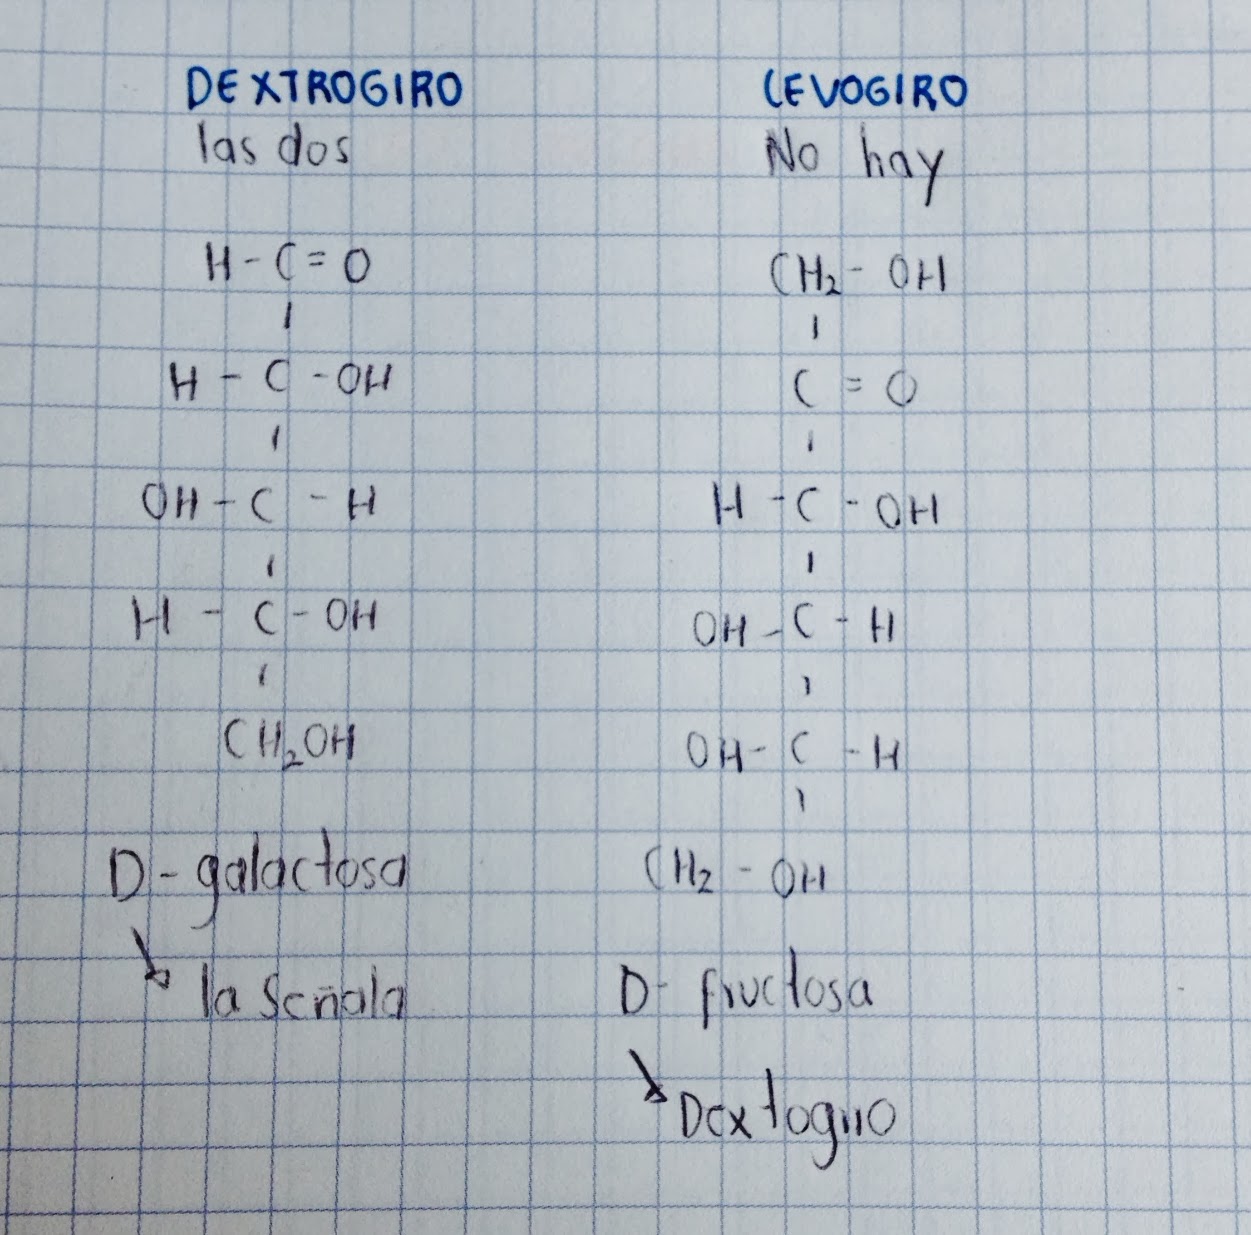 DEXTROGIRO
las dos
H - C = O
|
H - C - OH
|
OH - C - H
|
H - C - OH
|
CH₂OH
D - galactosa
↘ la Señala
LEVOGIRO
No hay
CH₂ - OH
|
C = O
|
H - C - OH
|
OH - C - H
|
OH - C - H
|
CH₂ - OH
D - fructosa
↘ Dextogiro